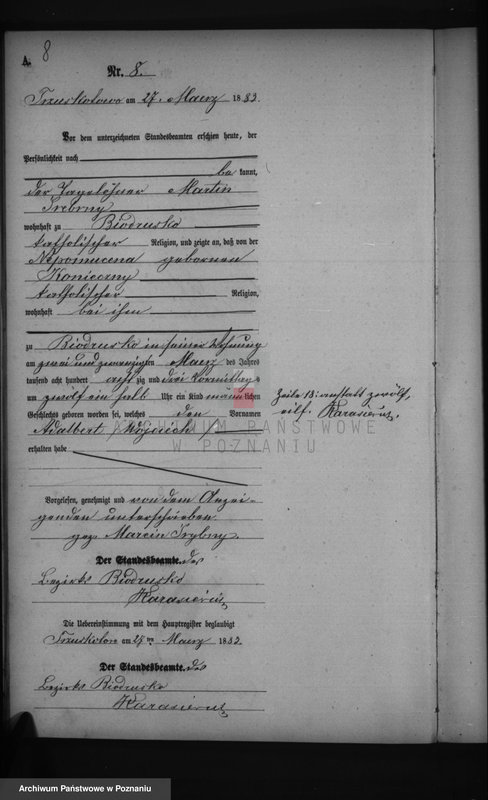 8
A.
Nr. 8.
Trzuskotowo am 27. Maerz 1883.
Vor dem unterzeichneten Standesbeamten erschien heute, der
Persönlichkeit nach
be kannt,
der Tagelöhner Martin
Srebrny
wohnhaft zu Biedrusko
katholischer Religion, und zeigte an, daß von der
Nepomucena gebornen
Konieczny
katholischer Religion,
wohnhaft bei ihm
zu Biedrusko in seiner Wohnung
am zwei und zwanzigsten Maerz des Jahres
tausend acht hundert acht zig und drei Vormittags
um zwölf ein halb Uhr ein Kind männlichen
Geschlechts geboren worden sei, welches den Vornamen
Adalbert /Wojciech/
erhalten habe
Zeile 18: anstatt zwölf,
eilf.
ARCHIWUM PAŃSTWOWE
W POZNANIU
Vorgelesen, genehmigt und von dem Anzei-
genden unterschrieben
gez. Marcin Srybny.
Der Standesbeamte. des
Bezirks Biedrusko
Die Uebereinstimmung mit dem Hauptregister beglaubigt
am Maerz 188
Der Standesbeamte. des
Bezirks Biedrusko
Archiwum Państwowe w Poznaniu